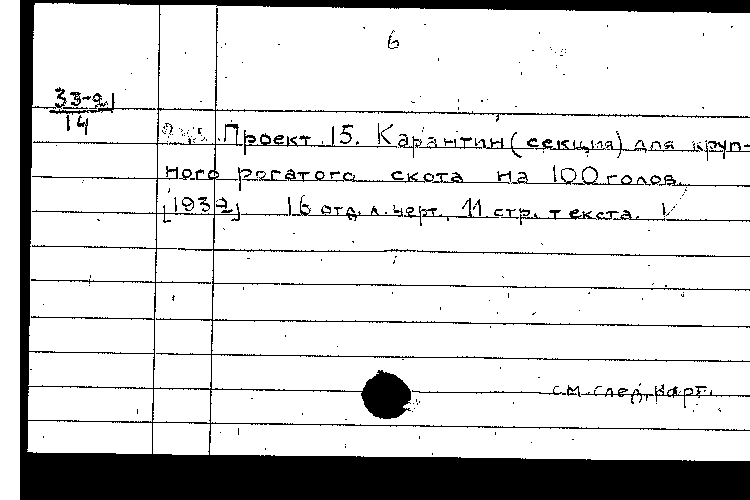 6
33-21
14
Проект 15. Карантин (секция) для круп-
ного рогатого скота на 100 голов.
[1932] 16 отд. л. черт., 11 стр. текста.
см. след. карт.